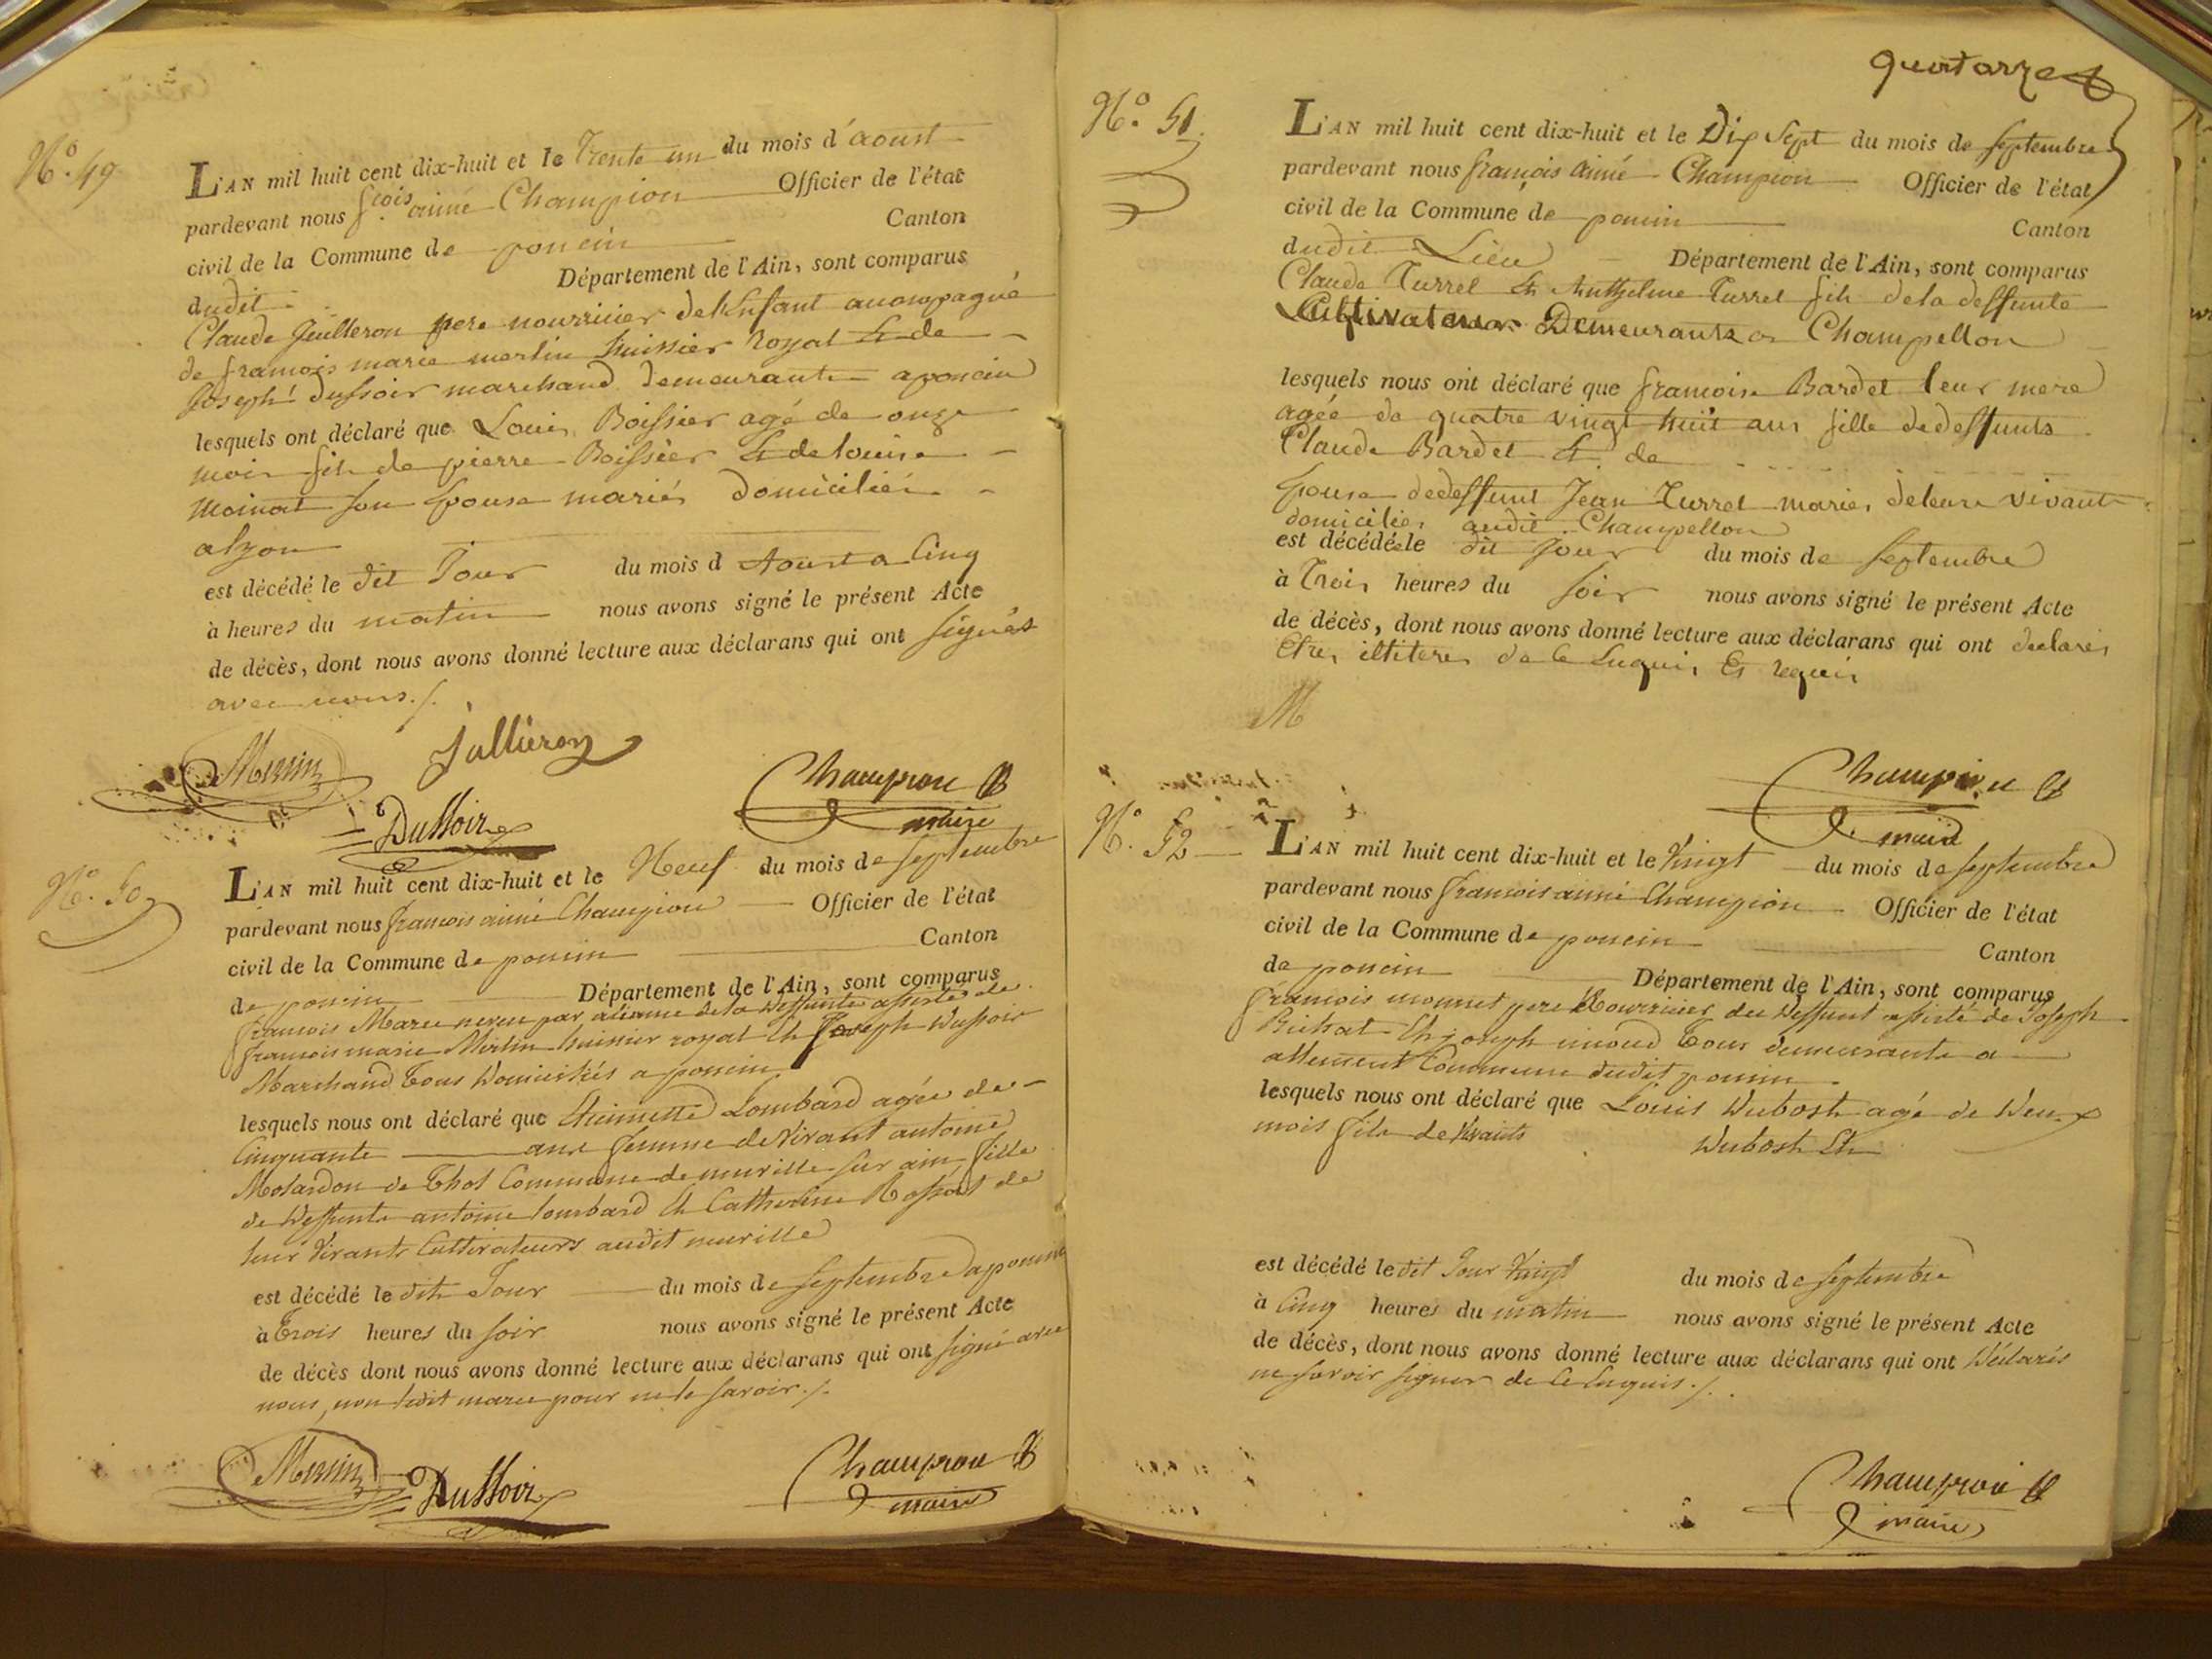 N.º 49
L'AN mil huit cent dix-huit et le Trente un du mois d'aoust
pardevant nous fcois aimé Champion Officier de l'état
civil de la Commune de poncin Canton
dudit Département de l'Ain, sont comparus
Claude Juilleron pere nourricier de l'Enfant accompagné
de francois marie merlin huissier Royal & de
Joseph dussoir marchand demeurants a poncin
lesquels ont déclaré que Louis Boissier agé de onze
mois fils de pierre Boissier & de louise
moinat son Epouse mariés domiciliés
alyon
est décédé le dit Jour du mois d Aoust a Cinq
à heures du matin nous avons signé le présent Acte
de décès, dont nous avons donné lecture aux déclarans qui ont signés
avec nous ./.
Merlin Jullieron Champion
maire
Dussoir
N.º 50
L'AN mil huit cent dix-huit et le Neuf du mois de septembre
pardevant nous francois aimé Champion Officier de l'état
civil de la Commune de poncin Canton
de poncin Département de l'Ain, sont comparus
francois Marce neveu par aliance de la deffunte assisté de
francois marie Merlin huissier royal & Joseph dussoir
Marchand tous domiciliés a poncin
lesquels nous ont déclaré que Lombard agée de
Cinquante ans femme de vivant antoine
Molardon de Thol Commune de neuville sur ain fille
de deffunts antoine lombard & Catherine de
leur vivants Cultivateurs audit neuville
est décédé le dit Jour du mois de septembre a poncin
à trois heures du soir nous avons signé le présent Acte
de décès dont nous avons donné lecture aux déclarans qui ont signé avec
nous, non ledit marce pour ne le savoir ./.
Merlin Dussoir Champion
maire
quatorze
N.º 51
L'AN mil huit cent dix-huit et le Dix Sept du mois de septembre
pardevant nous françois aimé Champion Officier de l'état
civil de la Commune de poncin Canton
dudit Lieu Département de l'Ain, sont comparus
Claude Turrel & Anthelme Turrel fils de la deffunte
Cultivateurs Demeurants a Champellon
lesquels nous ont déclaré que francoise Bardet leur mere
agée de quatre vingt huit ans fille de deffunts
Claude Bardet & de
Epouse de deffunt Jean Turrel mariés deleurs vivants
domiciliés audit Champellon
est décédée le dit jour du mois de septembre
à Trois heures du soir nous avons signé le présent Acte
de décès, dont nous avons donné lecture aux déclarans qui ont declarés
Etres illiteres de ce Enquis & requis
M
Champion
maire
N.º 52
L'AN mil huit cent dix-huit et le Vingt du mois de septembre
pardevant nous francois aimé Champion Officier de l'état
civil de la Commune de poncin Canton
de poncin Département de l'Ain, sont comparus
francois monnet pere Nourricier du deffunt assisté de Joseph
Bichat & joseph tous demeurants a
allement Commune dudit poncin
lesquels nous ont déclaré que Louis Dubost agé de deux
mois fils de vivants Dubost &
est décédé le dit Jour vingt du mois de septembre
à Cinq heures du matin nous avons signé le présent Acte
de décès, dont nous avons donné lecture aux déclarans qui ont déclarés
ne savoir signer de ce Enquis ./.
Champion
maire